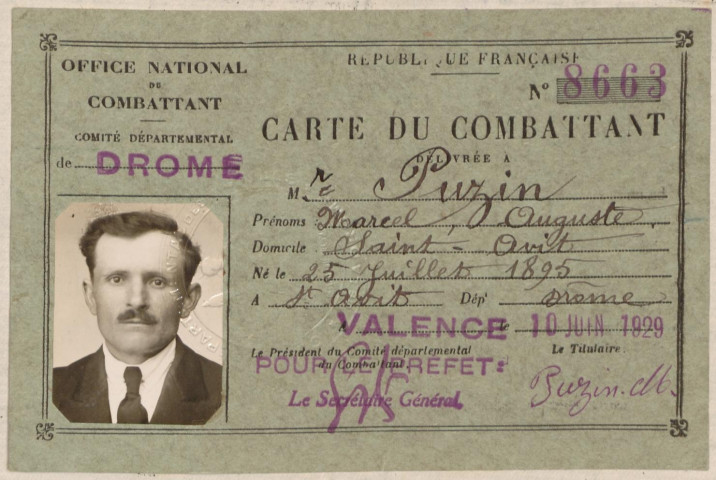 OFFICE NATIONAL
DU
COMBATTANT
COMITÉ DÉPARTEMENTAL
de DROME
RÉPUBLIQUE FRANÇAISE
N° 8663
CARTE DU COMBATTANT
DÉLIVRÉE A
M. r Puzin
Prénoms Marcel, Auguste,
Domicile Saint-Avit
Né le 25 Juillet 1895
A St Avit Dépt Drôme
A VALENCE le 10 JUIN 1929
Le Président du Comité départemental
du Combattant,
POUR LE PREFET:
Le Secrétaire Général
Le Titulaire
Puzin. M.